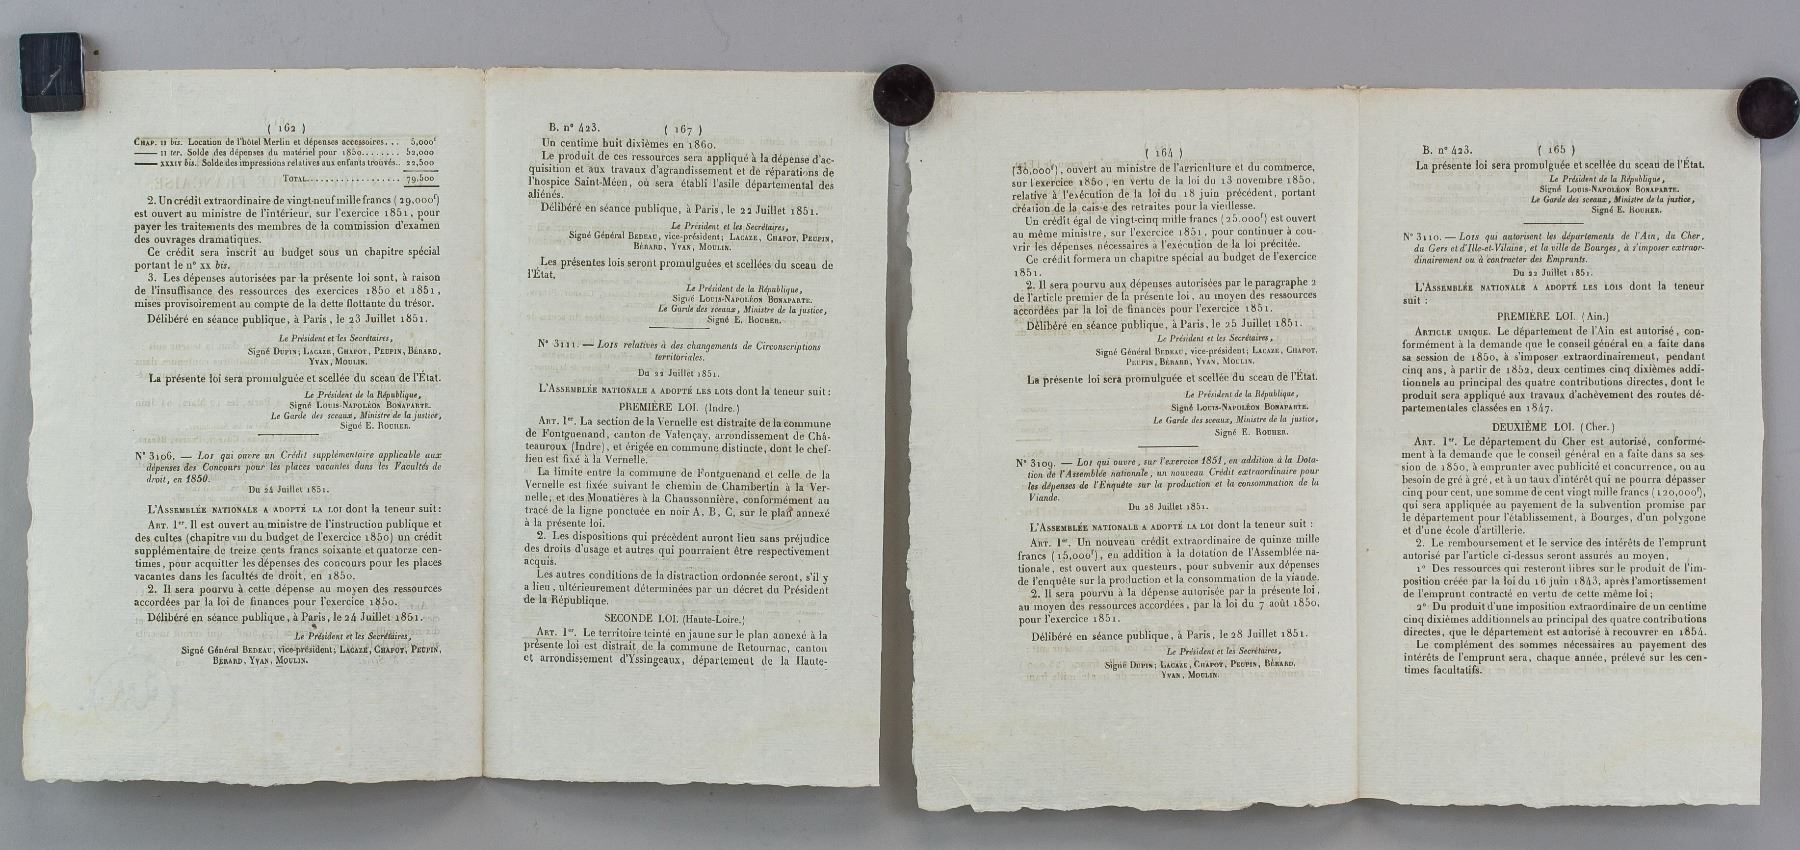 ( 162 )
CHAP. II bis. Location de l'hôtel Merlin et dépenses accessoires. . . 5,000f
—— II ter. Solde des dépenses du matériel pour 1850........ 52,000
—— XXXIV bis. Solde des impressions relatives aux enfants trouvés.. 22,500
TOTAL.................. 79,500
2. Un crédit extraordinaire de vingt-neuf mille francs (29,000f)
est ouvert au ministre de l'intérieur, sur l'exercice 1851, pour
payer les traitements des membres de la commission d'examen
des ouvrages dramatiques.
Ce crédit sera inscrit au budget sous un chapitre spécial
portant le n° XX bis.
3. Les dépenses autorisées par la présente loi sont, à raison
de l'insuffisance des ressources des exercices 1850 et 1851,
mises provisoirement au compte de la dette flottante du trésor.
Délibéré en séance publique, à Paris, le 23 Juillet 1851.
Le Président et les Secrétaires,
Signé DUPIN; LACAZE, CHAPOT, PEUPIN, BÉRARD,
YVAN, MOULIN.
La présente loi sera promulguée et scellée du sceau de l'État.
Le Président de la République,
Signé LOUIS-NAPOLÉON BONAPARTE.
Le Garde des sceaux, Ministre de la justice,
Signé E. ROUHER.
N° 3106. — LOI qui ouvre un Crédit supplémentaire applicable aux
dépenses des Concours pour les places vacantes dans les Facultés de
droit, en 1850.
Du 24 Juillet 1851.
L'ASSEMBLÉE NATIONALE A ADOPTÉ LA LOI dont la teneur suit:
ART. 1er. Il est ouvert au ministre de l'instruction publique et
des cultes (chapitre VIII du budget de l'exercice 1850) un crédit
supplémentaire de treize cents francs soixante et quatorze cen-
times, pour acquitter les dépenses des concours pour les places
vacantes dans les facultés de droit, en 1850.
2. Il sera pourvu à cette dépense au moyen des ressources
accordées par la loi de finances pour l'exercice 1850.
Délibéré en séance publique, à Paris, le 24 Juillet 1851.
Le Président et les Secrétaires,
Signé Général BEDEAU, vice-président; LACAZE, CHAPOT, PEUPIN,
BÉRARD, YVAN, MOULIN.
B. n° 423. ( 167 )
Un centime huit dixièmes en 1860.
Le produit de ces ressources sera appliqué à la dépense d'ac-
quisition et aux travaux d'agrandissement et de réparations de
l'hospice Saint-Méen, où sera établi l'asile départemental des
aliénés.
Délibéré en séance publique, à Paris, le 22 Juillet 1851.
Le Président et les Secrétaires,
Signé Général BEDEAU, vice-président; LACAZE, CHAPOT, PEUPIN,
BÉRARD, YVAN, MOULIN.
Les présentes lois seront promulguées et scellées du sceau de
l'État.
Le Président de la République,
Signé LOUIS-NAPOLÉON BONAPARTE.
Le Garde des sceaux, Ministre de la justice,
Signé E. ROUHER.
N° 3111. — LOIS relatives à des changements de Circonscriptions
territoriales.
Du 22 Juillet 1851.
L'ASSEMBLÉE NATIONALE A ADOPTÉ LES LOIS dont la teneur suit:
PREMIÈRE LOI. (Indre.)
ART. 1er. La section de la Vernelle est distraite de la commune
de Fontguenand, canton de Valençay, arrondissement de Châ-
teauroux (Indre), et érigée en commune distincte, dont le chef-
lieu est fixé à la Vernelle.
La limite entre la commune de Fontguenand et celle de la
Vernelle est fixée suivant le chemin de Chambertin à la Ver-
nelle, et des Monatières à la Chaussonnière, conformément au
tracé de la ligne ponctuée en noir A, B, C, sur le plan annexé
à la présente loi.
2. Les dispositions qui précèdent auront lieu sans préjudice
des droits d'usage et autres qui pourraient être respectivement
acquis.
Les autres conditions de la distraction ordonnée seront, s'il y
a lieu, ultérieurement déterminées par un décret du Président
de la République.
SECONDE LOI. (Haute-Loire.)
ART. 1er. Le territoire teinté en jaune sur le plan annexé à la
présente loi est distrait de la commune de Retournac, canton
et arrondissement d'Yssingeaux, département de la Haute-
( 164 )
(36,000f), ouvert au ministre de l'agriclture et du commerce,
sur l'exercice 1850, en vertu de la loi du 13 novembre 1850,
relative à l'exécution de la loi du 18 juin précédent, portant
création de la caisse des retraites pour la vieillesse.
Un crédit égal de vingt-cinq mille francs (25,000f) est ouvert
au même ministre, sur l'exercice 1851, pour continuer à cou-
vrir les dépenses nécessaires à l'exécution de la loi précitée.
Ce crédit formera un chapitre spécial au budget de l'exercice
1851.
2. Il sera pourvu aux dépenses autorisées par le paragraphe 2
de l'article premier de la présente loi, au moyen des ressources
accordées par la loi de finances pour l'exercice 1851.
Délibéré en séance publique, à Paris, le 25 Juillet 1851.
Le Président et les Secrétaires,
Signé Général BEDEAU, vice-président; LACAZE, CHAPOT,
PEUPIN, BÉRARD, YVAN, MOULIN.
La présente loi sera promulguée et scellée du sceau de l'État.
Le Président de la République,
Signé LOUIS-NAPOLÉON BONAPARTE.
Le Garde des sceaux, Ministre de la justice,
Signé E. ROUHER.
N° 3109. — LOI qui ouvre, sur l'exercice 1851, en addition à la Dota-
tion de l'Assemblée nationale, un nouveau Crédit extraordinaire pour
les dépenses de l'Enquête sur la production et la consommation de la
Viande.
Du 28 Juillet 1851.
L'ASSEMBLÉE NATIONALE A ADOPTÉ LA LOI dont la teneur suit :
ART. 1er. Un nouveau crédit extraordinaire de quinze mille
francs (15,000f), en addition à la dotation de l'Assemblée na-
tionale, est ouvert aux questeurs, pour subvenir aux dépenses
de l'enquête sur la production et la consommation de la viande.
2. Il sera pourvu à la dépense autorisée par la présente loi,
au moyen des ressources accordées, par la loi du 7 août 1850,
pour l'exercice 1851.
Délibéré en séance publique, à Paris, le 28 Juillet 1851.
Le Président et les Secrétaires,
Signé DUPIN; LACAZE, CHAPOT, PEUPIN, BÉRARD,
YVAN, MOULIN.
B. n° 423. ( 165 )
La présente loi sera promulguée et scellée du sceau de l'État.
Le Président de la République,
Signé LOUIS-NAPOLÉON BONAPARTE.
Le Garde des sceaux, Ministre de la justice,
Signé E. ROUHER.
N° 3110. — LOIS qui autorisent les départements de l'Ain, du Cher,
du Gers et d'Ille-et-Vilaine, et la ville de Bourges, à s'imposer extraor-
dinairement ou à contracter des Emprunts.
Du 22 Juillet 1851.
L'ASSEMBLÉE NATIONALE A ADOPTÉ LES LOIS dont la teneur
suit :
PREMIÈRE LOI. (Ain.)
ARTICLE UNIQUE. Le département de l'Ain est autorisé, con-
formément à la demande que le conseil général en a faite dans
sa session de 1850, à s'imposer extraordinairement, pendant
cinq ans, à partir de 1852, deux centimes cinq dixièmes addi-
tionnels au principal des quatre contributions directes, dont le
produit sera appliqué aux travaux d'achèvement des routes dé-
partementales classées en 1847.
DEUXIÈME LOI. (Cher.)
ART. 1er. Le département du Cher est autorisé, conformé-
ment à la demande que le conseil général en a faite dans sa ses
sion de 1850, à emprunter avec publicité et concurrence, ou au
besoin de gré à gré, et à un taux d'intérêt qui ne pourra dépasser
cinq pour cent, une somme de cent vingt mille francs (120,000f),
qui sera appliquée au payement de la subvention promise par
le département pour l'établissement, à Bourges, d'un polygone
et d'une école d'artillerie.
2. Le remboursement et le service des intérêts de l'emprunt
autorisé par l'article ci-dessus seront assurés au moyen,
1° Des ressources qui resteront libres sur le produit de l'im-
position créée par la loi du 16 juin 1843, après l'amortissement
de l'emprunt contracté en vertu de cette même loi;
2° Du produit d'une imposition extraordinaire de un centime
cinq dixièmes additionnels au principal des quatre contributions
directes, que le département est autorisé à recouvrer en 1854.
Le complément des sommes nécessaires au payement des
intérêts de l'emprunt sera, chaque année, prélevé sur les cen-
times facultatifs.